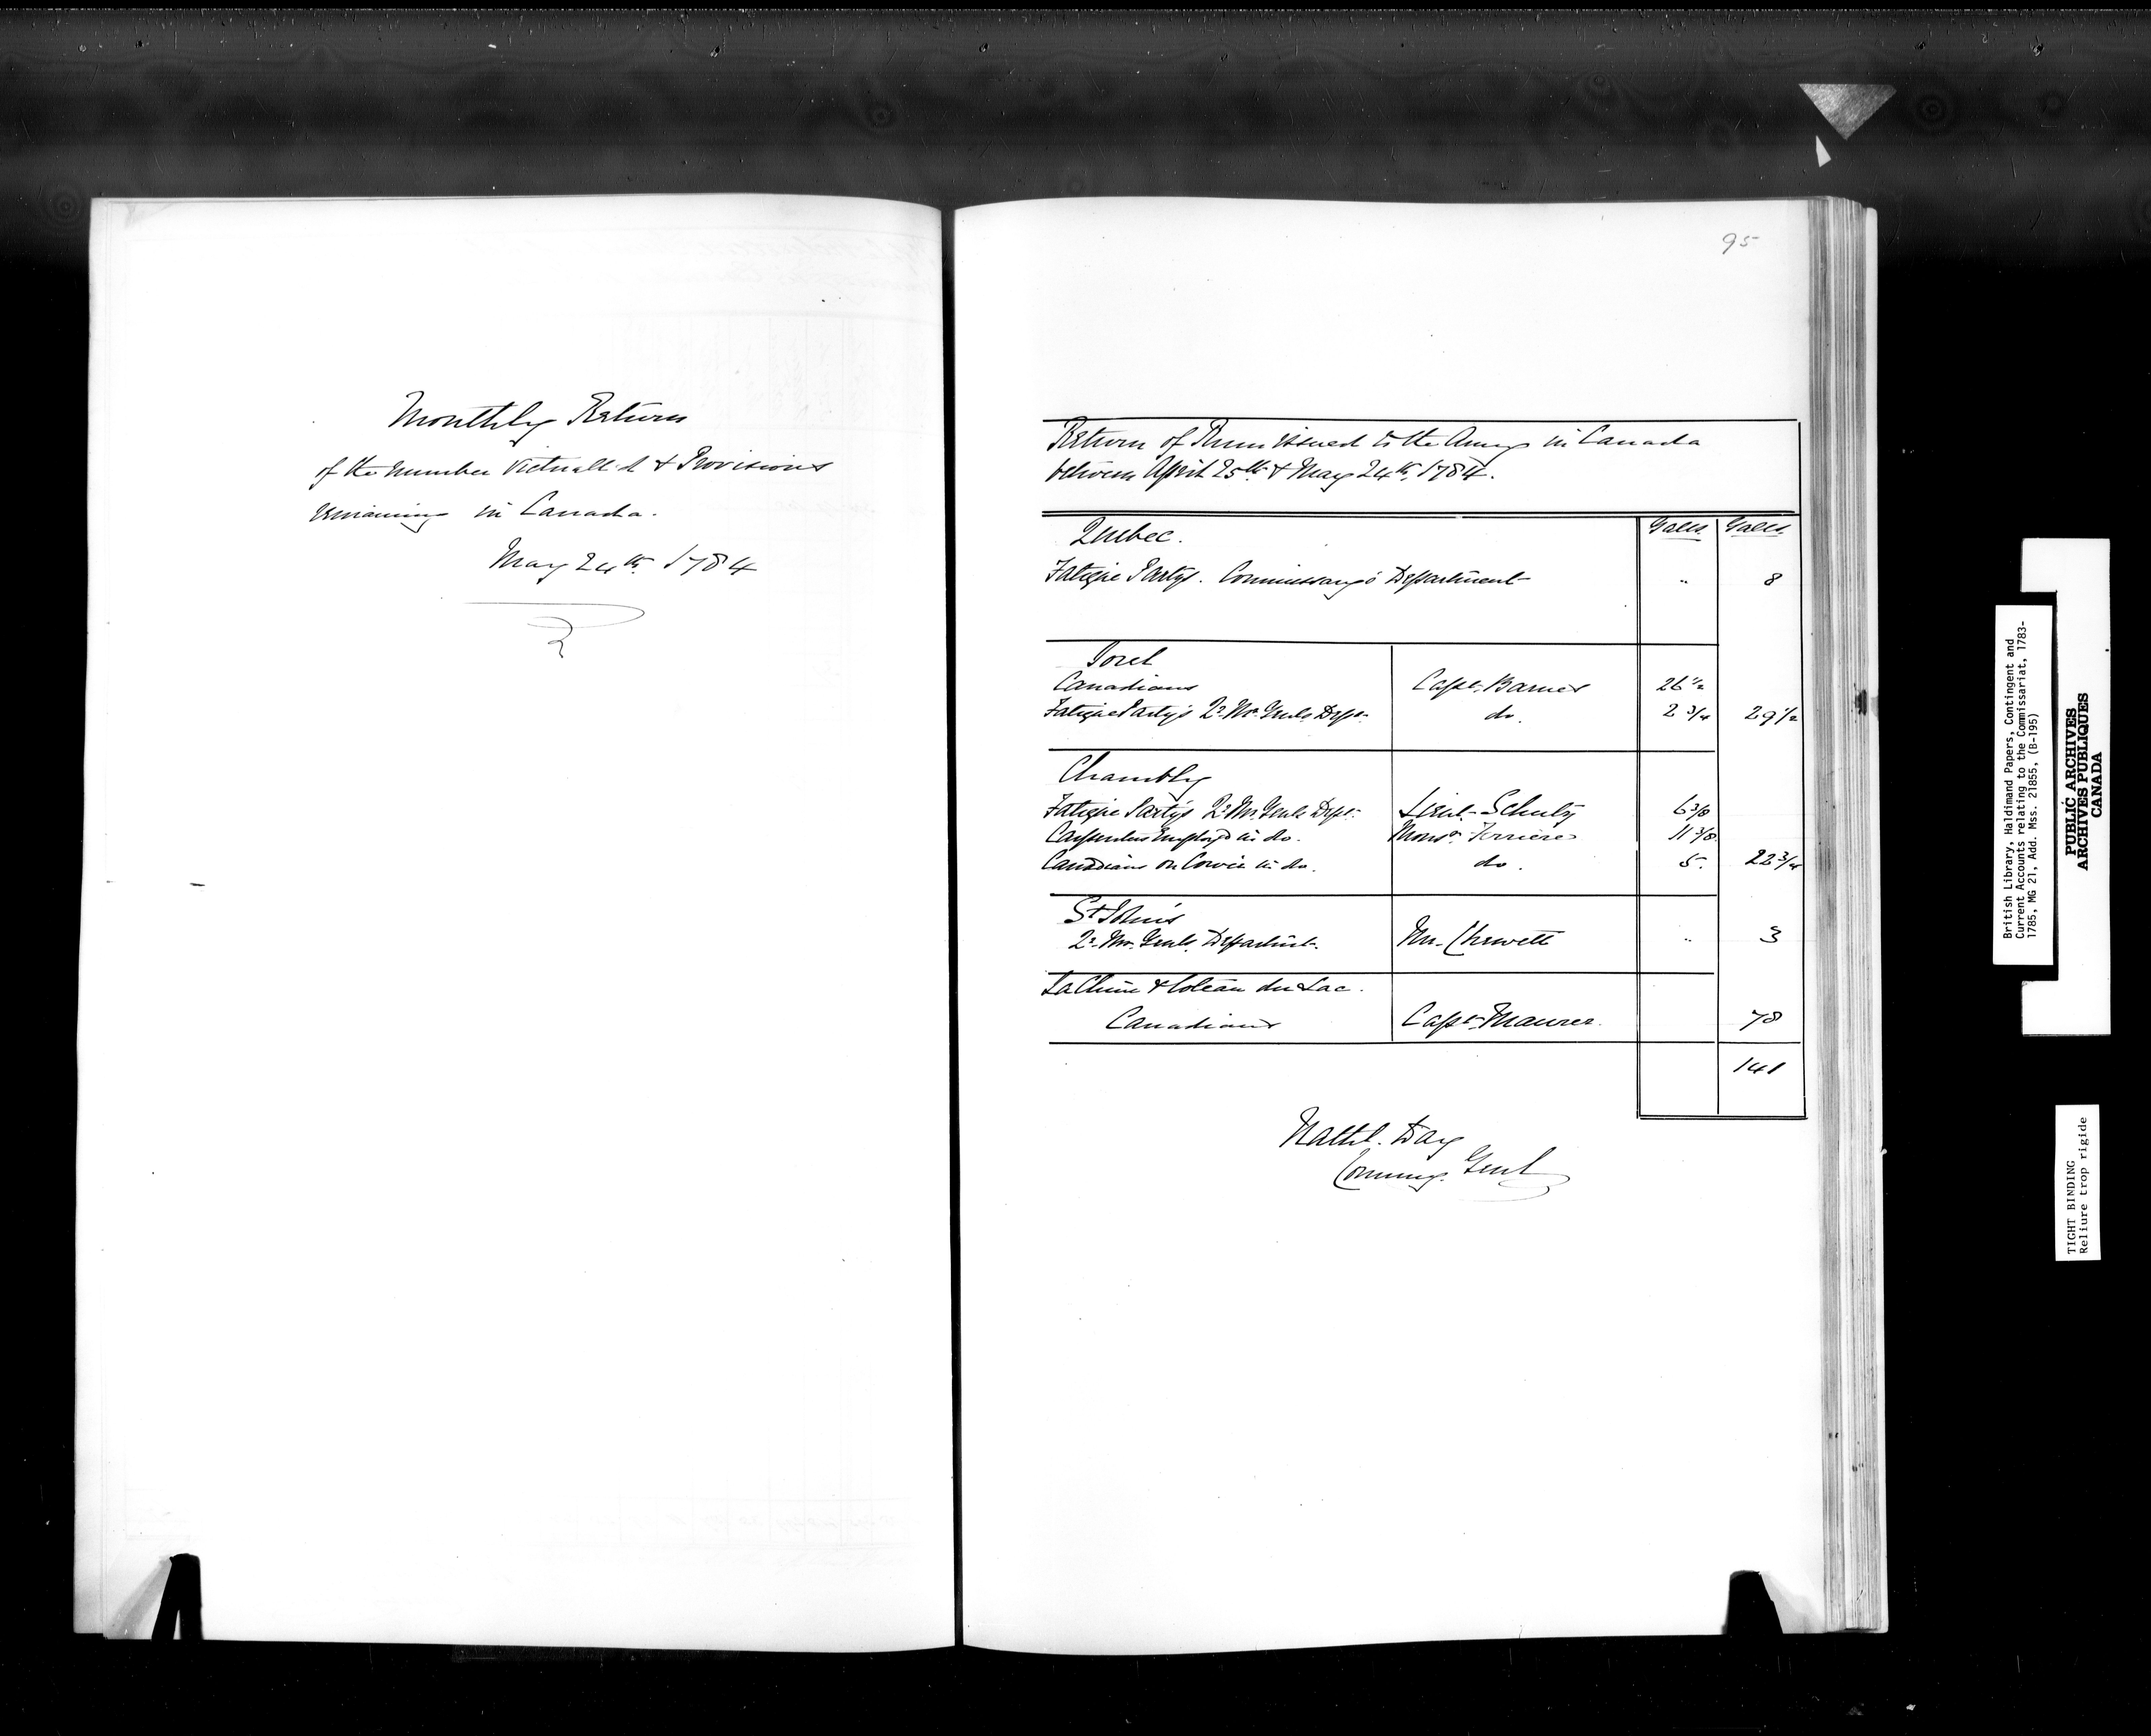 Monthly Return
of the Number Victuall'd & Provisions
remaining in Canada.
May 24th 1784
95
Return of Rum issued to the Army in Canada
between April 25th & May 24th, 1784.
Galls. Galls.
Quebec.
Fatigue Partys. Commissary's Department " 8
Sorel
Canadians Capt. Barnes 26 1/2
Fatigue Partys Qr. Mr. Genls Dept. do. 2 3/4 29 1/2
Chambly
Fatigue Partys Qr. Mr. Genls Dept. Lieut. Schulz 6 3/8
Carpenters Employ'd in do. Monsr. Ferriere 11 3/8
Canadians on Corvée in do. do. 5. 22 3/4
St. John's
Qr. Mr. Genls. Departmt. Mr. Chewett " 3
La Chine & Coteau du Lac.
Canadians Capt. Maurer. 78
141
Nathl. Day
Commy. Genl
British Library, Haldimand Papers, Contingent and
Current Accounts relating to the Commissariat, 1783-
1785, MG 21, Add. Mss. 21855, (B-195)
PUBLIC ARCHIVES
ARCHIVES PUBLIQUES
CANADA
TIGHT BINDING
Reliure trop rigide